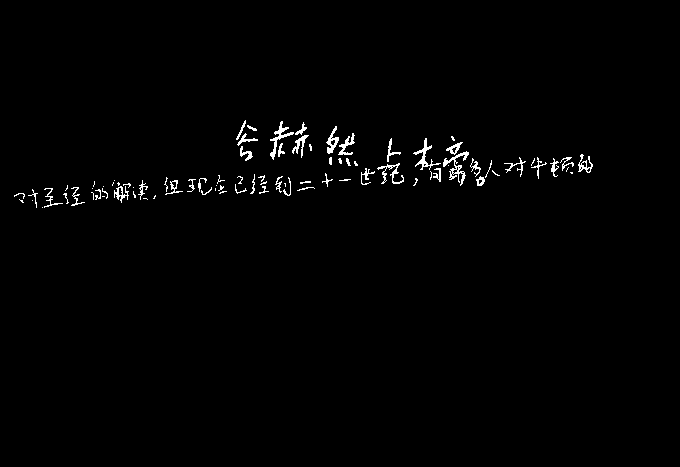 谷赫然 占本高
对圣经的解读,但现在已经到二十一世纪,有富多人对牛顿的